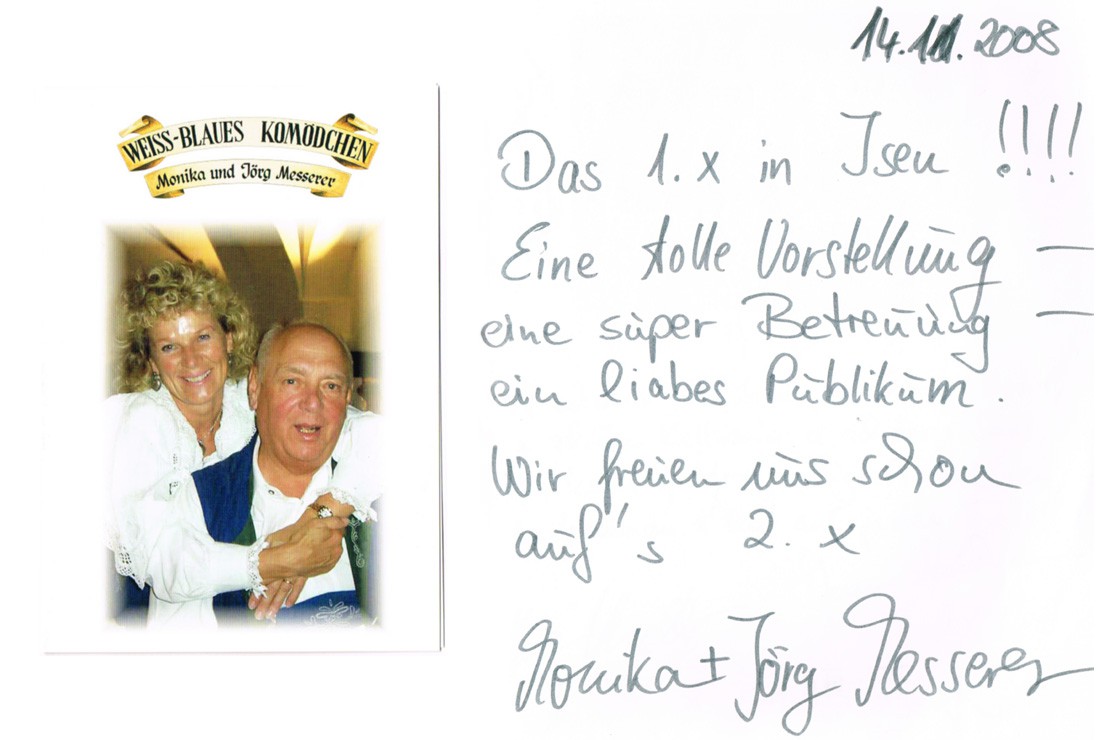 WEISS-BLAUES KOMÖDCHEN
Monika und Jörg Messerer
14.11.2008
Das 1. x in Isen !!!!
Eine tolle Vorstellung –
eine super Betreuung –
ein liabes Publikum.
Wir freuen uns schon
auf's 2. x
Monika + Jörg Messerer